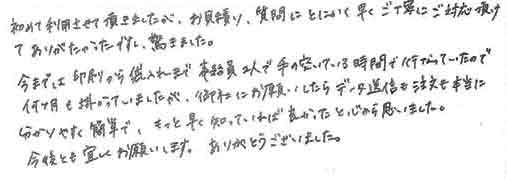 初めて利用させて頂きましたが、お見積り、質問にとにかく早くご丁寧にご対応頂け
てありがたかったですし、驚きました。
今までは印刷から封入れまで事務員2人で手の空いている時間で行なっていたので
何ヶ月も掛かっていましたが、御社にお願いしたらデータ送信も注文も本当に
分かりやすく簡単で、もっと早く知っていれば良かったと心から思いました。
今後とも宜しくお願いします。ありがとうございました。